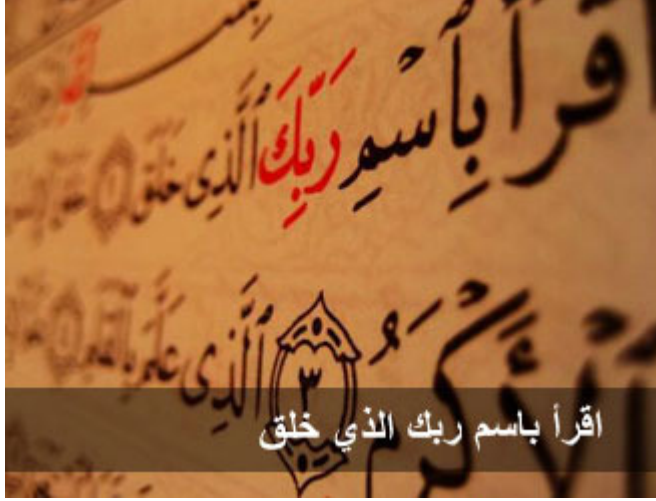 بِسْمِ
ٱقْرَأْ بِٱسْمِ رَبِّكَ ٱلَّذِى خَلَقَ ۝١
ٱلْأَكْرَمُ ۝٣ ٱلَّذِى عَلَّمَ بِٱلْقَلَمِ
اقرأ باسم ربك الذي خلق